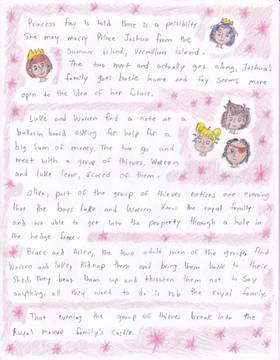 Princess Fay is told there is a possibility
She may marry Prince Joshua from the
Summer island, Vermillion Island.
The two meet and actually get along, Joshua's
family goes back home and Fay seems more
open to the idea of her future.
Luke and Warren find a note at a
bulletin board asking for help for a
big sum of money. The two go and
meet with a group of thieves, Warren
and Luke leave, scared of them.
Olive, part of the group of thieves notices are running
that the boys Luke and Warren know the royal family
and are able to get into the property through a hole in
the hedge fence.
Bruce and Arlen, the two adult men of the groups find
Warren and Luke, kidnap them and bring them back to their
shed. They beat them up and threaten them not to say
anything, all they want to do is rob the royal family.
That evening the group of thieves break into the
Royal family's Castle.